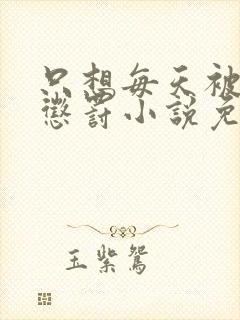 只想每天被
懲罰小說免
玉紫鴛